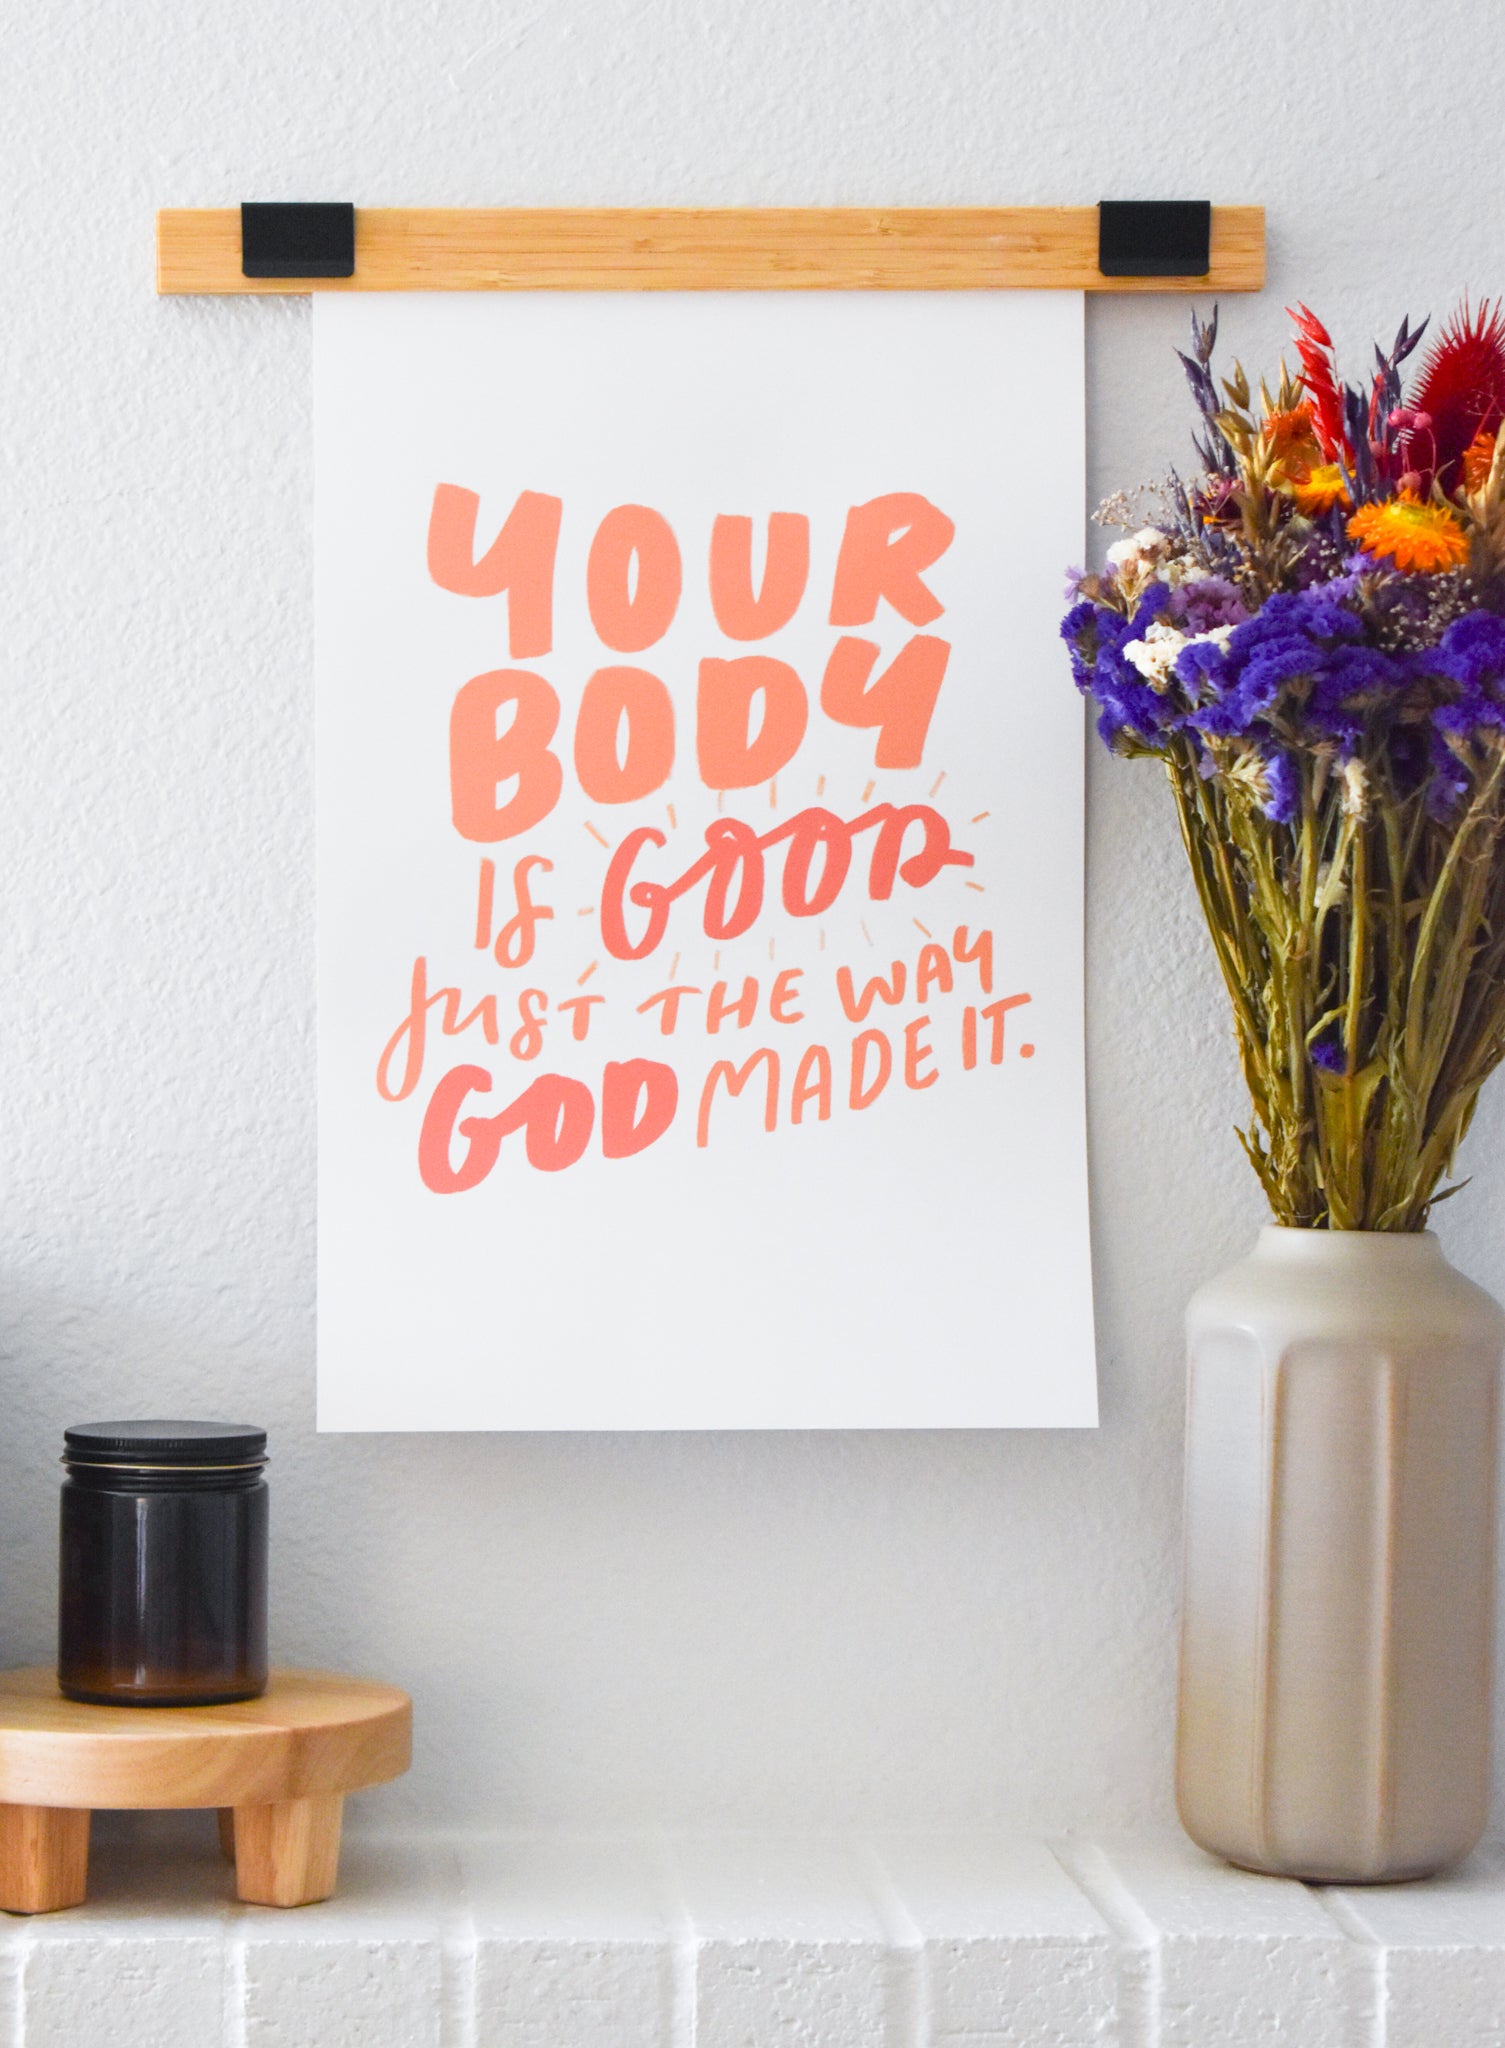 YOUR
BODY
IS GOOD
JUST THE WAY
GOD MADE IT.